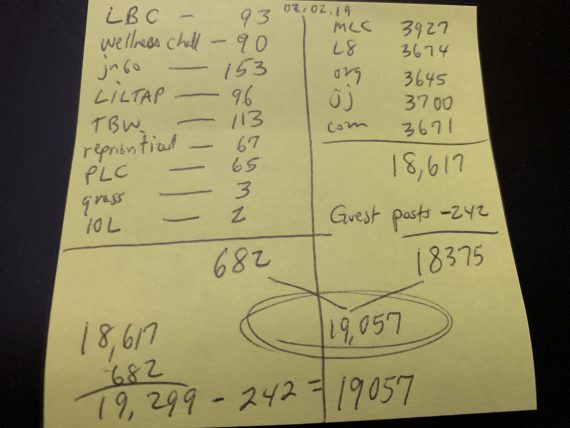 02.02.19
LBC - 93
wellness chall - 90
jngo — 153
LiLTAP — 96
TBW — 113
67
PLC — 65
grass — 3
IOL — 2
682
MLC 3927
L8 3674
org 3645
Oj 3700
com 3671
18,617
Guest posts -242
18375
19,057
18,617
682
19,299 - 242 = 19057